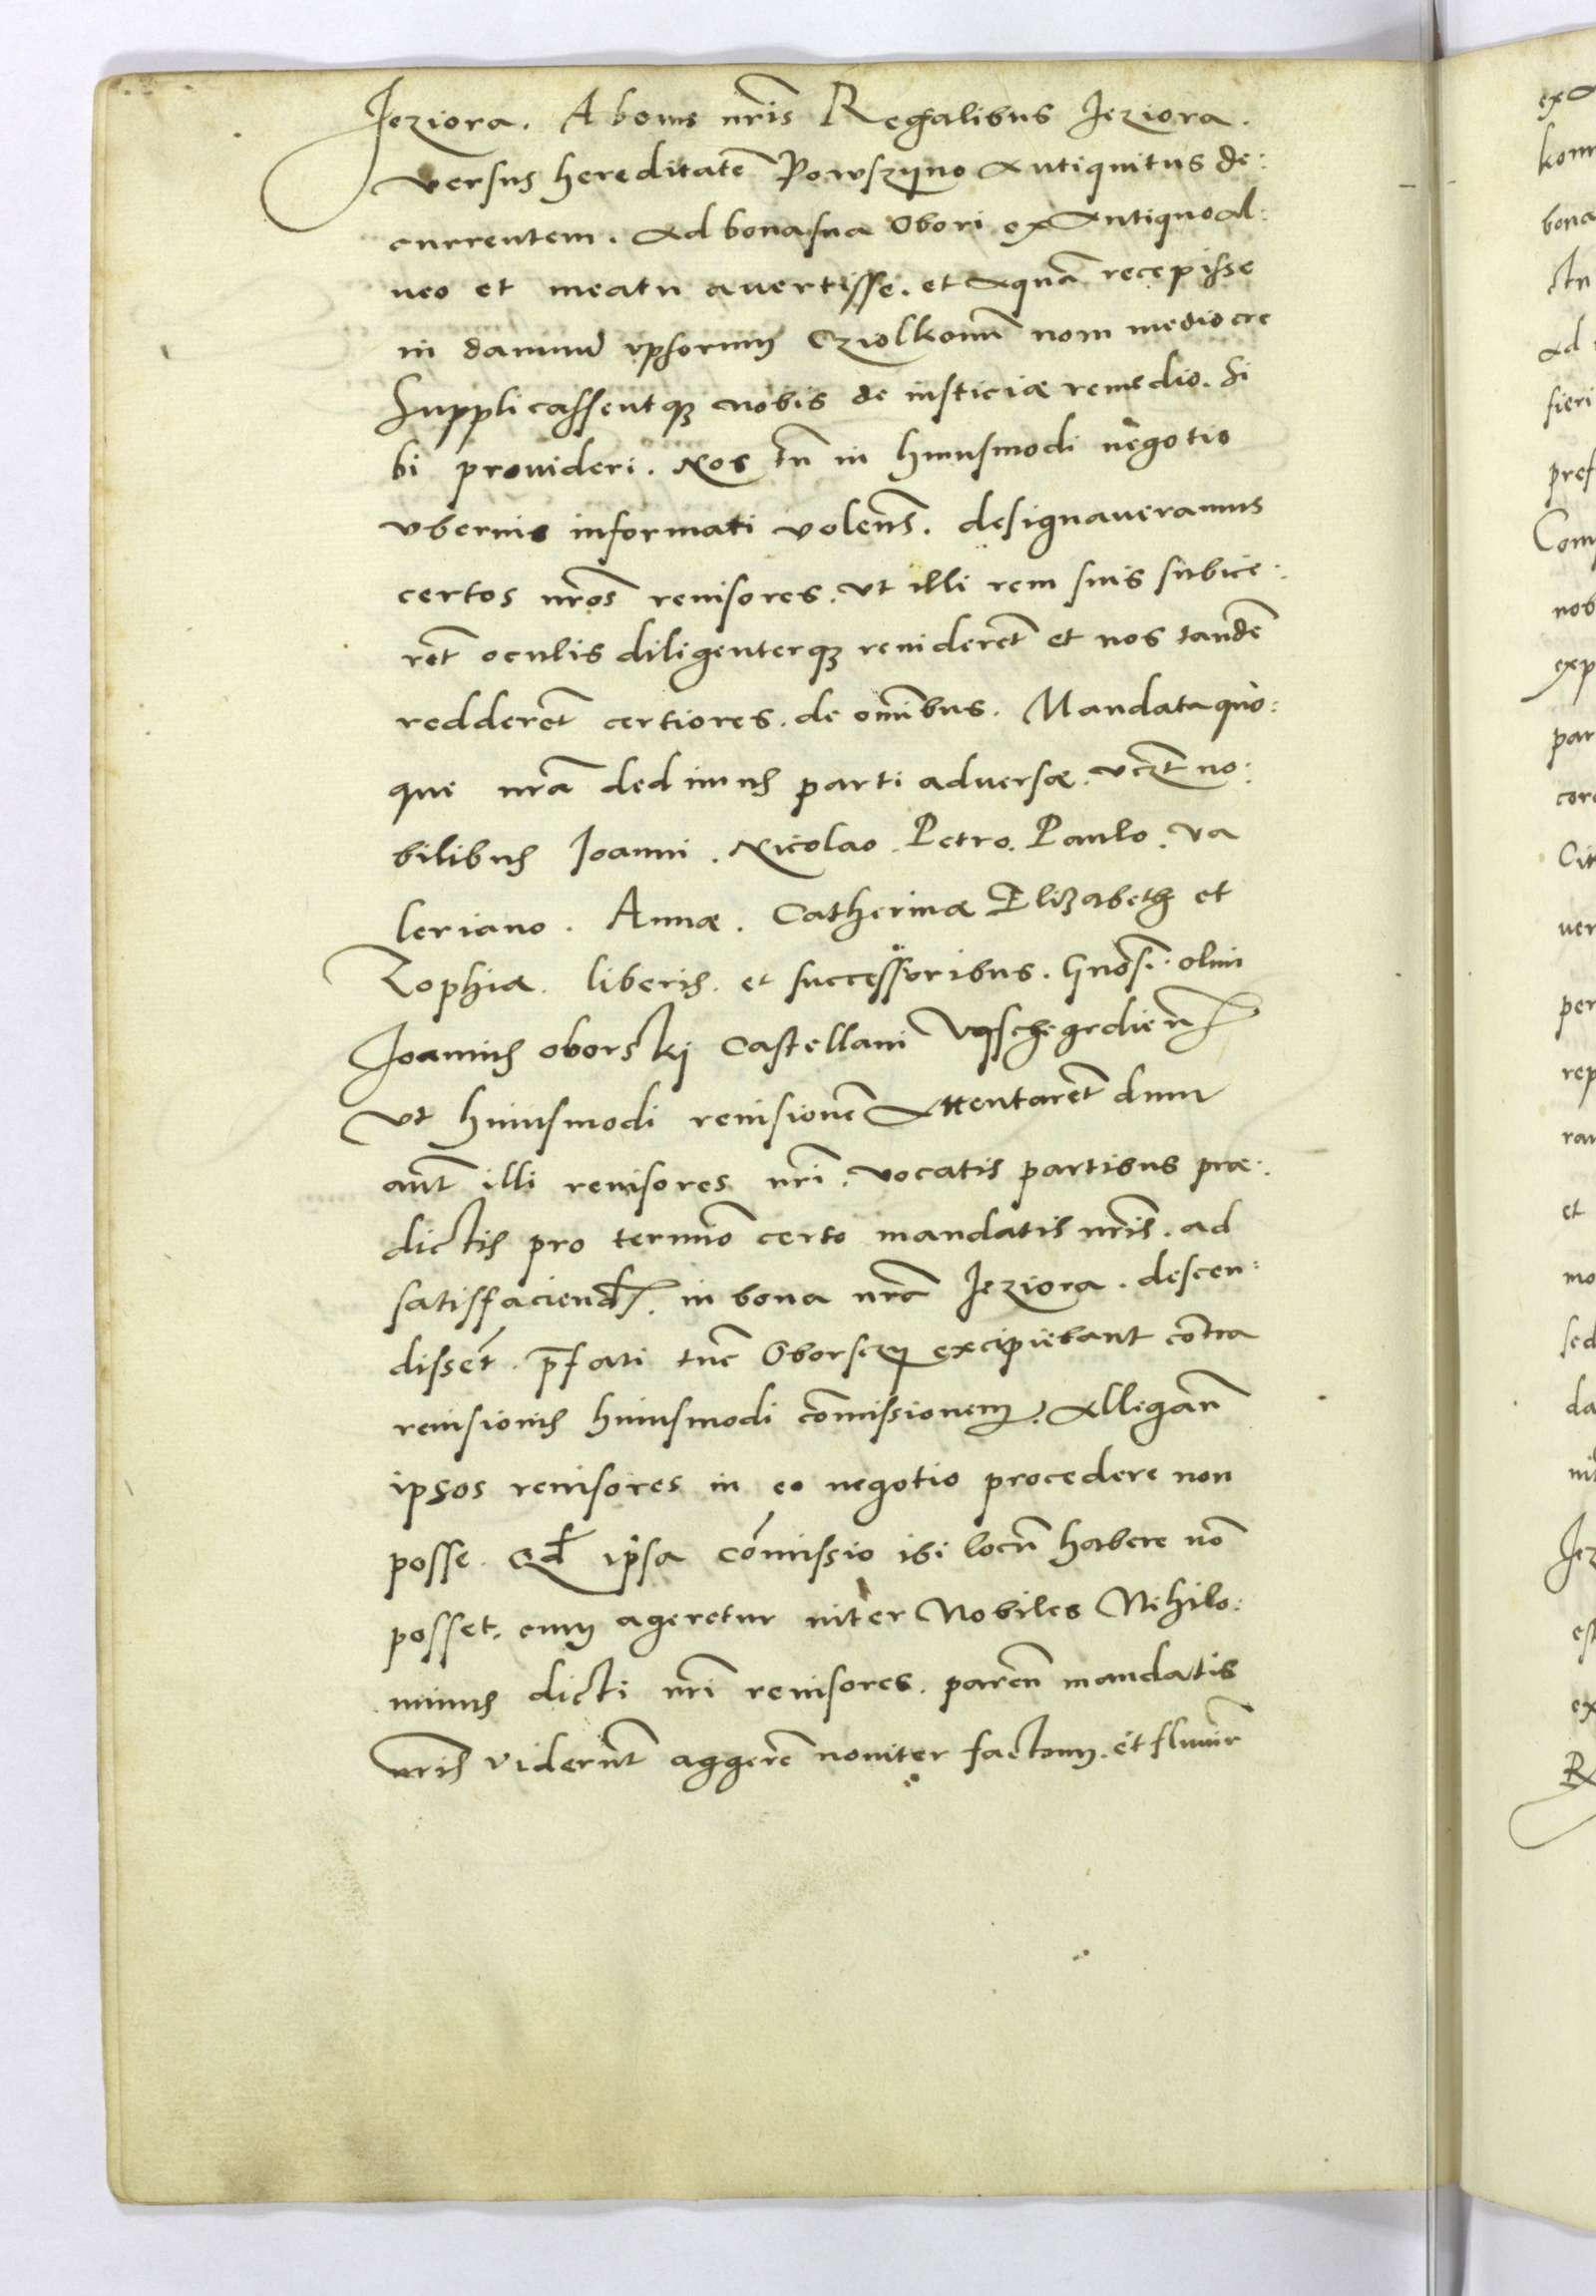 Jeziora. A bonis nr̃is Regalibus Jeziora.
versus hereditatẽ Powszyno Antiquitus de:
currentem. Ad bona sua Obori ex Antiquo al:
ueo et meatu auertisse. et Aquã recepisse
in damnũ ipsorum Cziolkonũ nom mediocre
Supplicassentqꝫ nobis de iusticiæ remedio. Si
bi prouideri. Nos tñ in huiusmodi negotio
vberius informati volens̃. designaueramus
certos nr̃os reuisores. Ut illi rem suis subice:
rẽt oculis diligenterqꝫ reuiderẽt et nos tandẽ
redderẽt certiores. de om̃ibus. Mandata quo:
que nr̃a dedimus parti aduersæ. vcz̃t no:
bilibus Joanni. Nicolao. Petro. Paulo. Va
leriano. Annæ. Catherinæ Elizabeth et
Zophiæ. liberis. et successoribus. Gnõsi. olim
Joannis oborskj Castellani Wyschegrdien̄
Ut huiusmodi reuisionẽ Attentarẽt dum
aũt illi reuisores nr̃i. vocatis partibus præ:
dictis pro termĩo certo mandatis nr̃is. ad
satisfaciend̄. in bona nr̃a Jeziora. descen:
dissẽt. p̃fati tũc Oborscy excipiebant cõtra
reuisionis huiusmodi cõmissionem. Allegañ
ipsos reuisores in eo negotio procedere non
posse. Qđ ipsa cõmissio ibi locũ habere nõ
posset. cum ageretur inter Nobiles Nihilo:
minus dicti nr̃i reuisores. pareñ mandatis
nr̃is viderũt aggerẽ nouiter factum. et fluuiũ